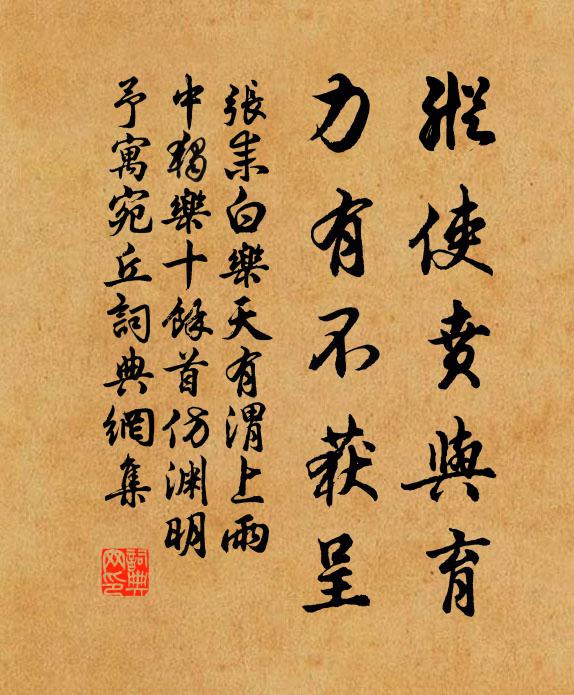 縱使賁與育
力有不獲呈
張耒白樂天有渭上雨
中獨樂十餘首仿淵明
予寓宛丘詞典網集
詞典
网印